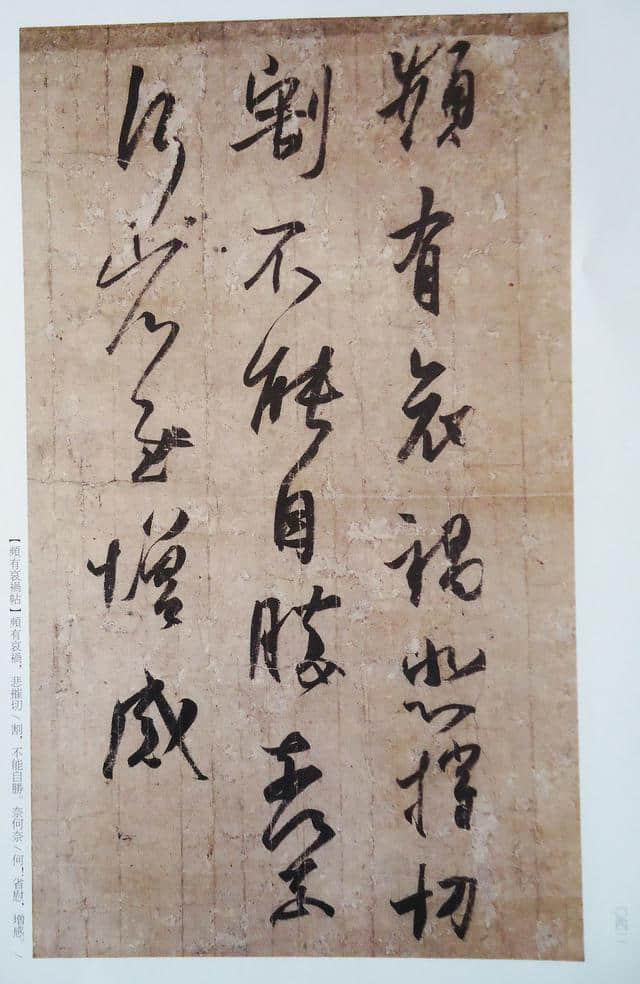 頻有哀禍悲摧切
割不能自勝奈何奈
何省慰增感
【頻有哀禍帖】頻有哀禍，悲摧切/割，不能自勝。奈何奈/何！省慰，增感。/